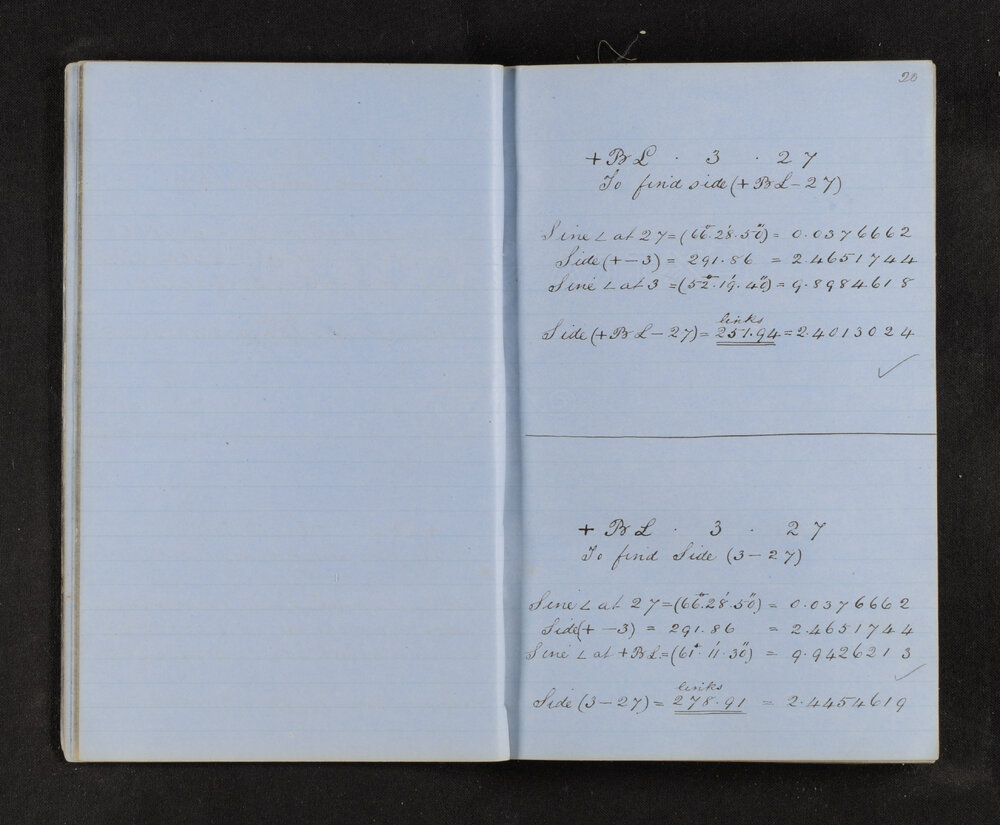 20
+ Br L · 3 · 27
To find side (+ Br L - 27)
Sine ∠ at 27 = (66°. 28'. 50") = 0.0376662
Side (+ - 3) = 291.86 = 2.4651744
Sine ∠ at 3 = (52°. 19'. 40") = 9.8984618
links
Side (+ Br L - 27) = 251.94 = 2.4013024
+ Br L · 3 · 27
To find Side (3 - 27)
Sine ∠ at 27 = (66°. 28'. 50") = 0.0376662
Side (+ - 3) = 291.86 = 2.4651744
Sine ∠ at + Br L = (61°. 11'. 30") = 9.9426213
links
Side (3 - 27) = 278.91 = 2.4454619